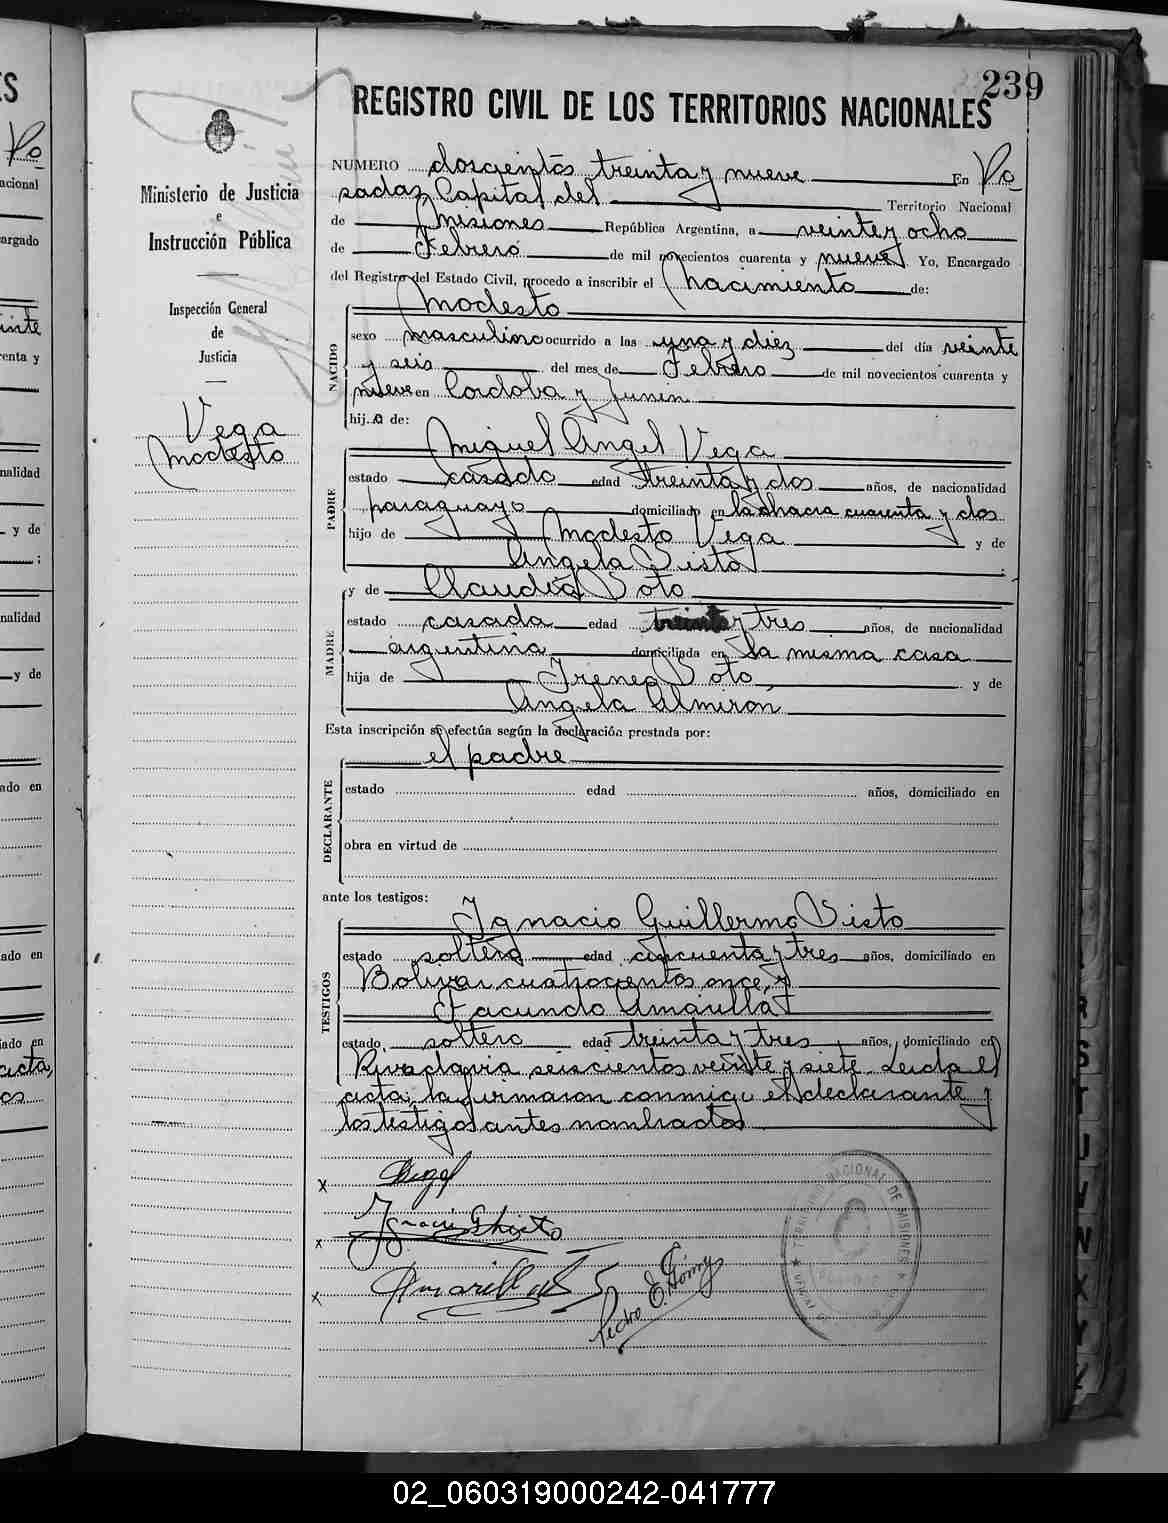 239
REGISTRO CIVIL DE LOS TERRITORIOS NACIONALES
Ministerio de Justicia
e
Instrucción Pública
Inspección General
de
Justicia
Vega
Modesto
NUMERO doscientos treinta y nueve En Po
sadas Capital del Territorio Nacional
de Misiones República Argentina, a veinte y ocho
de Febrero de mil novecientos cuarenta y nueve Yo, Encargado
del Registro del Estado Civil, procedo a inscribir el nacimiento de:
NACIDO
Modesto
sexo masculino ocurrido a las una y diez del día veinte
y seis del mes de Febrero de mil novecientos cuarenta y
nueve en Cordoba y Junin
hij.o de:
PADRE
Miguel Angel Vega
estado casado edad treinta y dos años, de nacionalidad
paraguayo domiciliado en la chacra cuarenta y dos
hijo de Modesto Vega y de
Angela Visto ;
MADRE
y de Claudia Soto
estado casada edad treinta y tres años, de nacionalidad
argentina domiciliada en la misma casa
hija de Ireneo Soto, y de
Angela Almiron
Esta inscripción se efectúa según la declaración prestada por:
el padre
DECLARANTE
estado edad años, domiciliado en
obra en virtud de
ante los testigos:
TESTIGOS
Ignacio Guillermo Visto
estado soltero edad cincuenta y tres años, domiciliado en
Bolivar cuatrocientos once, y
Facundo Amarilla
estado soltero edad treinta y tres años, domiciliado en
Rivadavia seiscientos veinte y siete. Leida el
acta, la firmaron conmigo el declarante y
los testigos antes nombrados
x
x
x
Pedro E. Gómez
TERRITORIO NACIONAL DE MISIONES
R
S
T
U
V
N
X
Y
Z
02_060319000242-041777